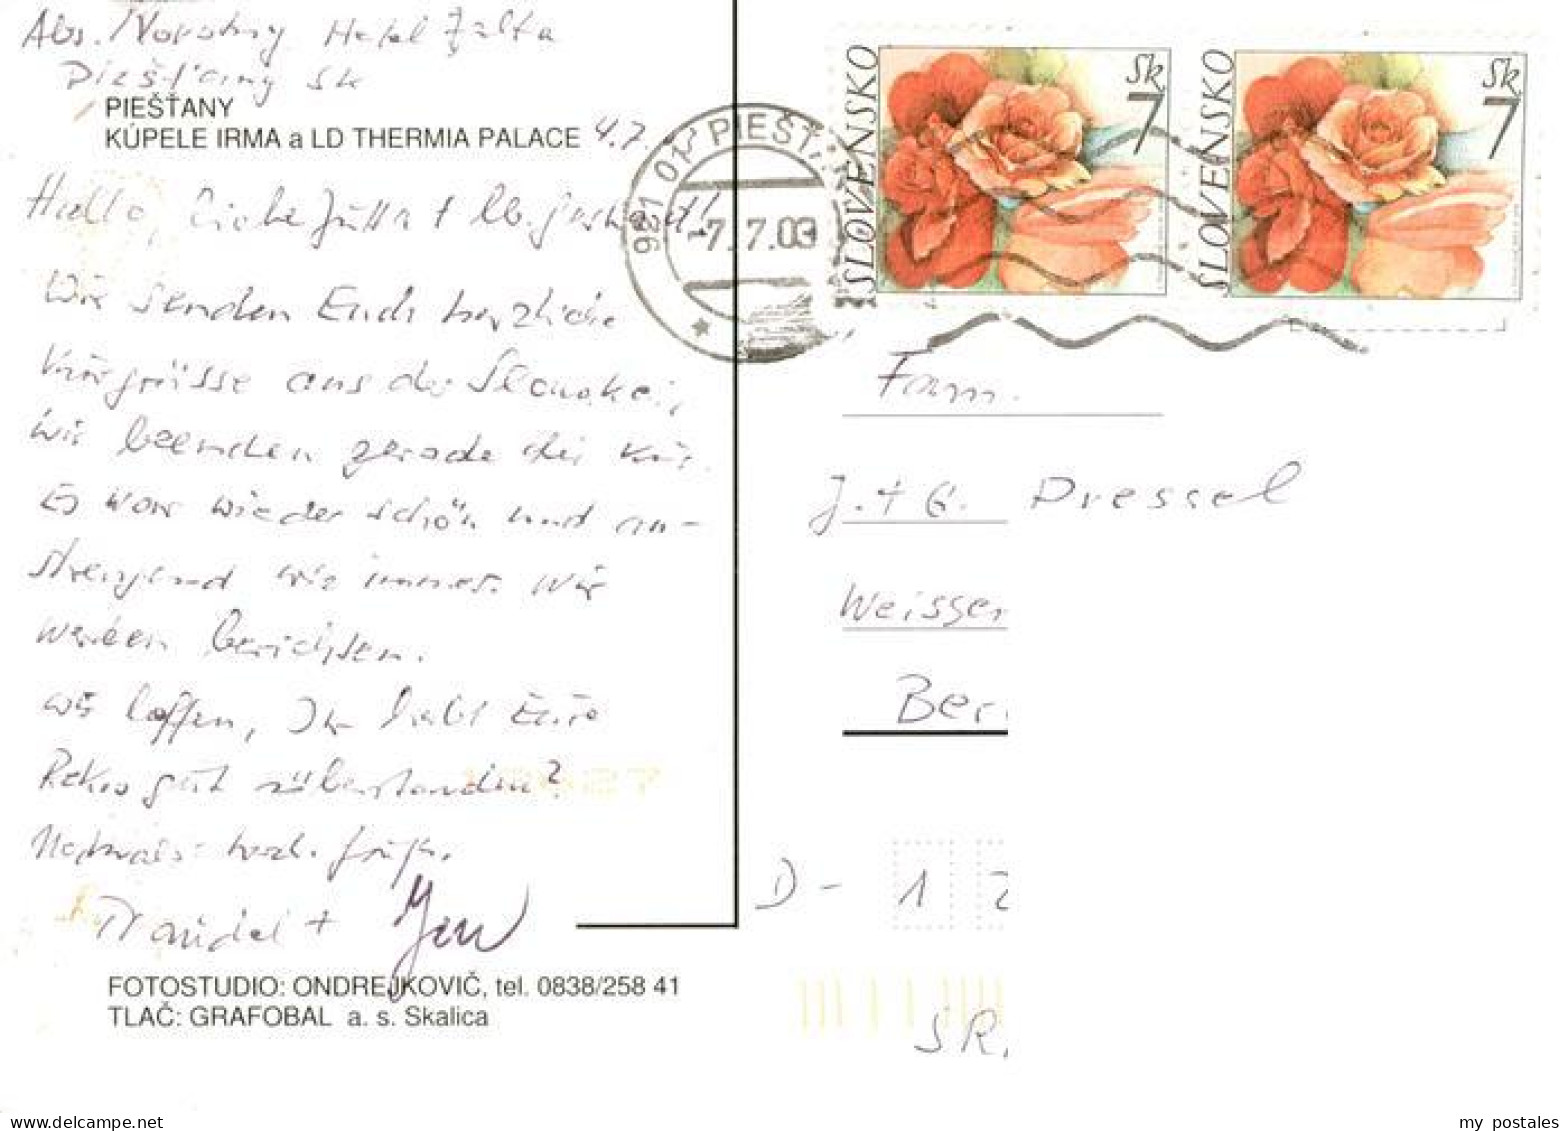 Abs. Novotny Hotel Jalta
Piešťany Sk
PIEŠŤANY
KÚPELE IRMA a LD THERMIA PALACE 4.7.
921 01 PIEŠŤA
-7.7.03
SLOVENSKO
Sk
7
SLOVENSKO
Sk
7
Hallo, Liebe Jutta + lb.
Wir senden Euch herzliche
Kurgrüsse aus der Slowakei,
wir beenden gerade die Kur.
Es war wieder schön und an-
strengend wie immer. Wir
werden berichten.
Wir hoffen, Ihr habt Eure
Reko gut überstanden?
Nochmals herzl. Grüße
+
Fam.
J. + G. Dressel
Weissen
Ber
D - 1 2
FOTOSTUDIO: ONDREJKOVIČ, tel. 0838/258 41
TLAČ: GRAFOBAL a. s. Skalica
my postales